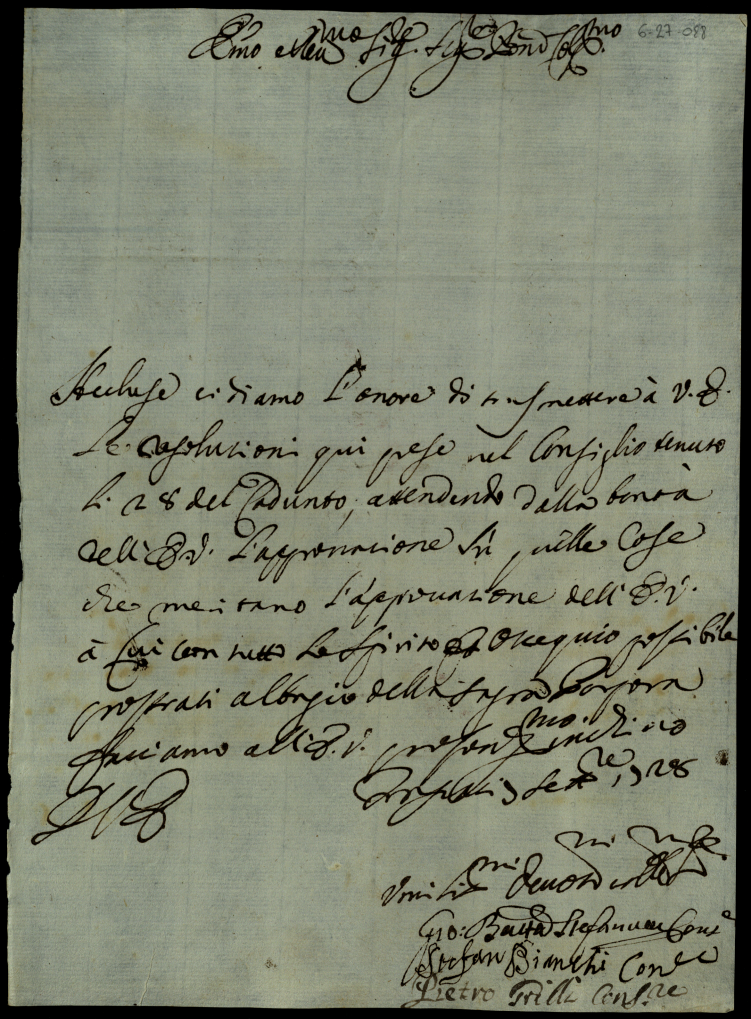 Em̃o e Reu.mo Sig.r Sig.r Pron̄ Col.mo 6-27-088
Accluse ci diamo L'onore di trasmettere à V. E.
Le resolutioni qui prese nel Consiglio tenuto
li 28 del Caduto, attendendo dalla bontà
dell' E. V. L'approuatione sù quelle Cose
che meritano l'approuatione dell' E. V.
à Cui con tutto Lo Spirito, et Ossequio possibile
prostrati al bagio della Sagra Porpora
facciamo all' E. V. profond.mo inchino
7 Sett.re 1728
D V E
Vmiliss.mi Deuot.mi
Gio: Batta Stefanucci Cons.e
Stefan Bianchi Con.re
Pietro Grilli Cons.re